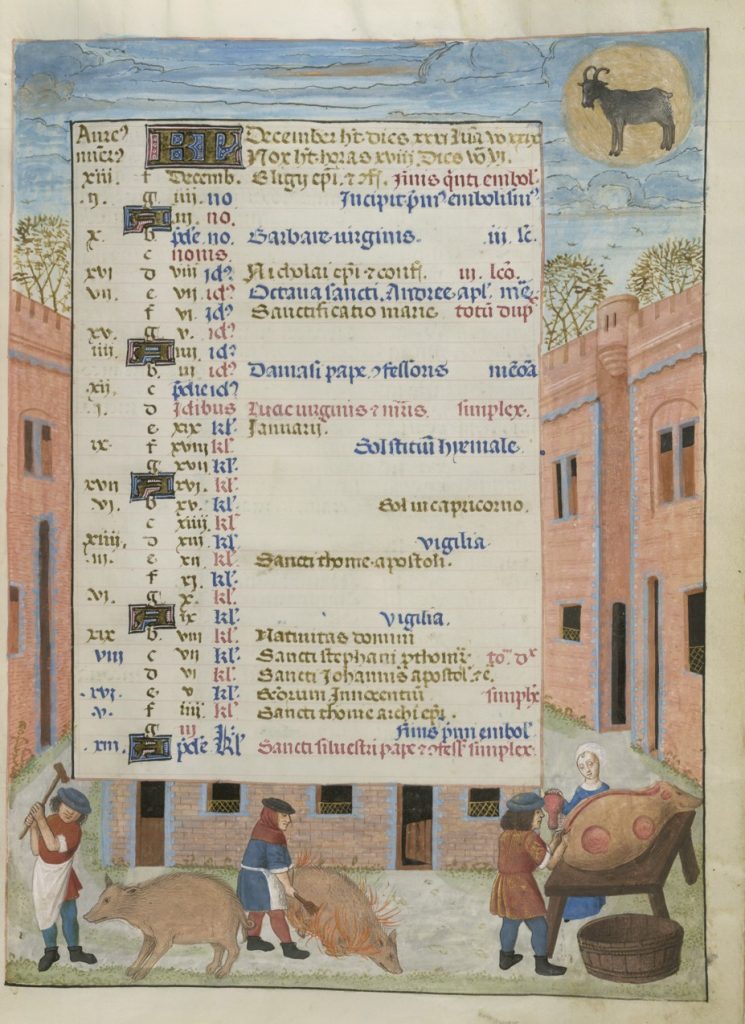 Aure⁹ KL December ht dies xxxi luna vo xxix
nuer⁹ Nox ht horas xviii. Dies vo vi.
xiii. f Decemb. Eligii epi. et ꝯf. Finis qnti embol
ii. g iiii. no Incipit pm⁹ embolism⁹
A iii. no.
x. b. pdie. no. Barbare uirginis. iii. lc.
c nonis.
xvi d viii id⁹ Nicholai epi et conf. iii. lco.
vii. e vii. id⁹ Octaua sancti Andree apl.
f vi. id⁹ Sanctificatio marie totu dup
xv. g v. id⁹
iiii. A iiii. id⁹
b iii id⁹ Damasi pape ꝯfessoris
xii. c pdie id⁹
i. d Idibus Lucie uirginis et mris. simplex.
e xix kl' Ianuarii.
ix. f xviii kl' Solstitiu hyemale.
g xvii kl'
xvii A xvi. kl'
vi. b xv. kl' Sol in capricorno.
c xiiii. kl'
xiiii. d xiii kl' vigilia
iii. e xii kl' Sancti thome apostoli.
f xi. kl'
vi. g x. kl'
A ix kl' vigilia.
xix b. viii kl' Natiuitas domini
viii c vii kl' Sancti stephani
d vi kl' Sancti Iohannis apostol.
xvi. e v kl' Sctorum Innocentiu simplx
v. f iiii. kl' Sancti thome archiepi.
g iii kl' finis pmi embol'
xiii. A pdie kl' Sancti siluestri pape et ꝯfess simplex.